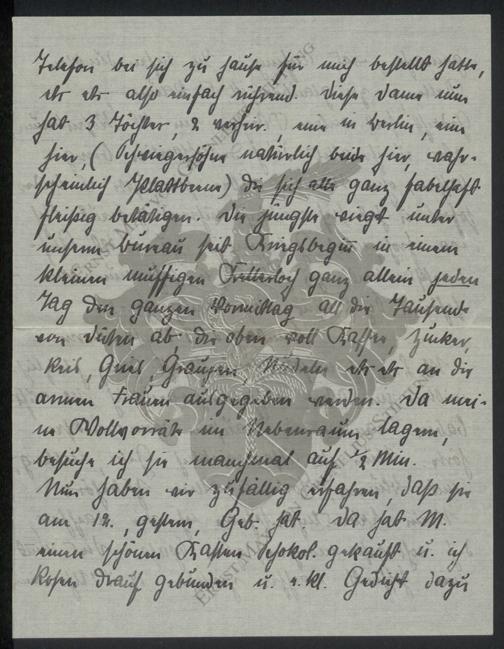 Telefon bei sich zu Hause für mich bestellt hatte,
etc etc also einfach rührend. Diese Dame nun
hat 3 Töchter, 2 verheir., eine in Berlin, eine
hier, (Schwiegersöhne natürlich beide hier, wahr-
scheinlich Plattbeine) die sich alle ganz fabelhaft
fleißig betätigen. Die jüngste wiegt unter
unserm Bureau seit Kriegsbeginn in einem
kleinen muffigen Kellerloch ganz allein jeden
Tag den ganzen Vormittag all die Tausende
von Düten ab die oben voll Kaffee, Zucker,
Reis, Gries, Graupen, Nudeln etc etc an die
armen Frauen ausgegeben werden. Da mei-
ne Wollvorräte im Nebenraum lagern,
besuche ich sie manchmal auf ½ Min.
Nun haben wir zufällig erfahren, daß sie
am 12., gestern, Geb. hat. Da hat M.
einen schönen Kasten Schokol. gekauft u. ich
Rosen drauf gebunden u. e. kl. Gedicht dazu